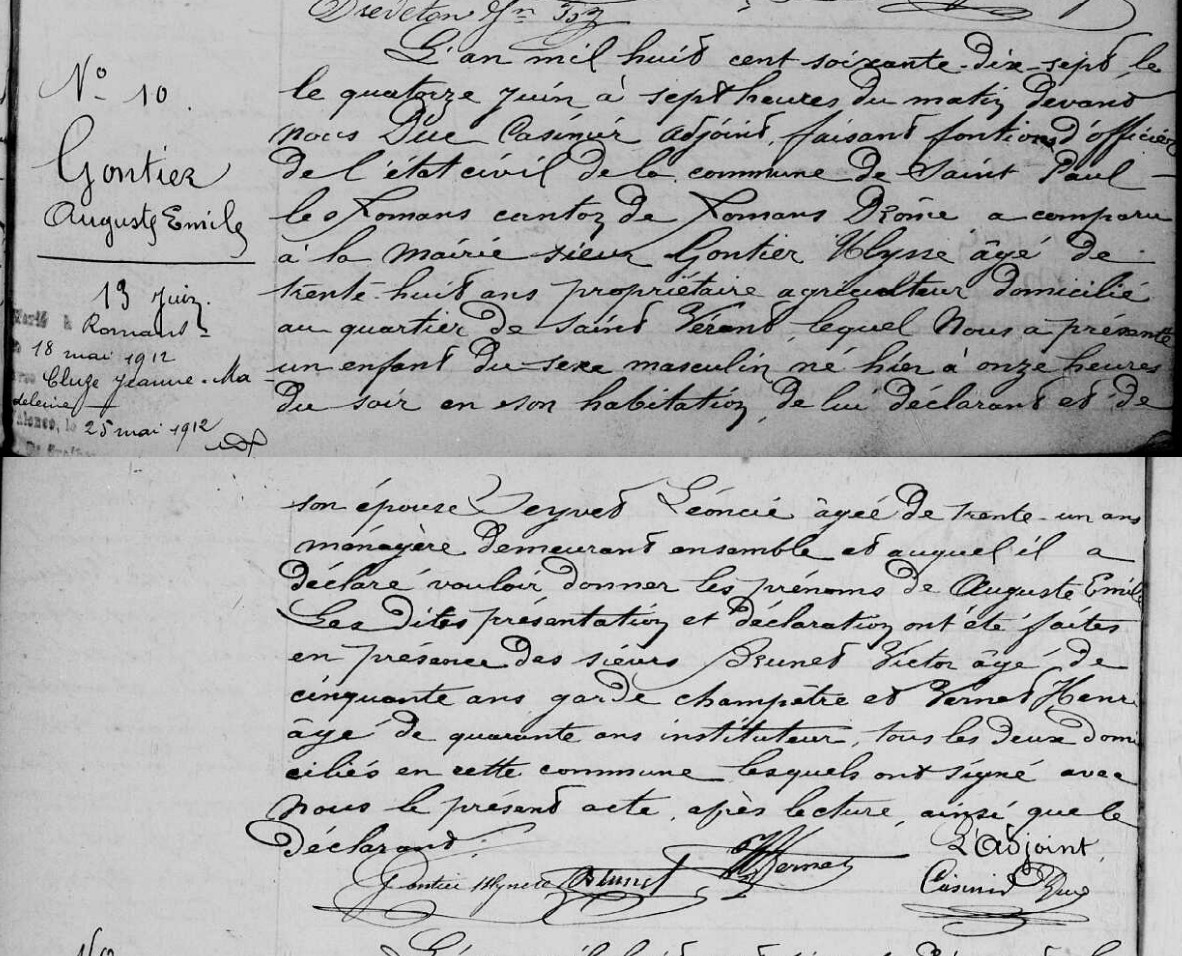 Dreveton
N° 10.
Gontier
Auguste Emile
13 Juin.
Marié à
Romans
le 18 mai 1912
avec Cluze Jeanne-Ma
deleine
Valence, le 25 mai 1912
L'an mil huit cent soixante-dix-sept, le
le quatorze Juin à sept heures du matin devant
nous Duc Casimir adjoint, faisant fontions d'officier
de l'état civil de la commune de Saint Paul-
les Romans canton de Romans Drôme a comparu
à la mairie sieur Gontier Ulysse âgé de
trente-huit ans propriétaire agriculteur domicilié
au quartier de Saint Vérant, lequel Nous a présenté
un enfant du sexe masculin, né hier à onze heures
du soir en son habitation, de lui déclarant et de
son épouse Peyret Léoncie âgée de trente-un ans
ménagère demeurant ensemble et auquel il a
déclaré vouloir donner les prénoms de Auguste Emile
Les dites présentation et déclaration ont été faites
en présence des sieurs Brunet Victor âgé de
cinquante ans garde champêtre et Vernet Henri
âgé de quarante ans instituteur, tous les deux domi
ciliés en cette commune lesquels ont signé avec
nous le présent acte, après lecture, ainsi que le
déclarant.
L'Adjoint,
Gontier Ulysse Brunet Vernet Casimir Duc